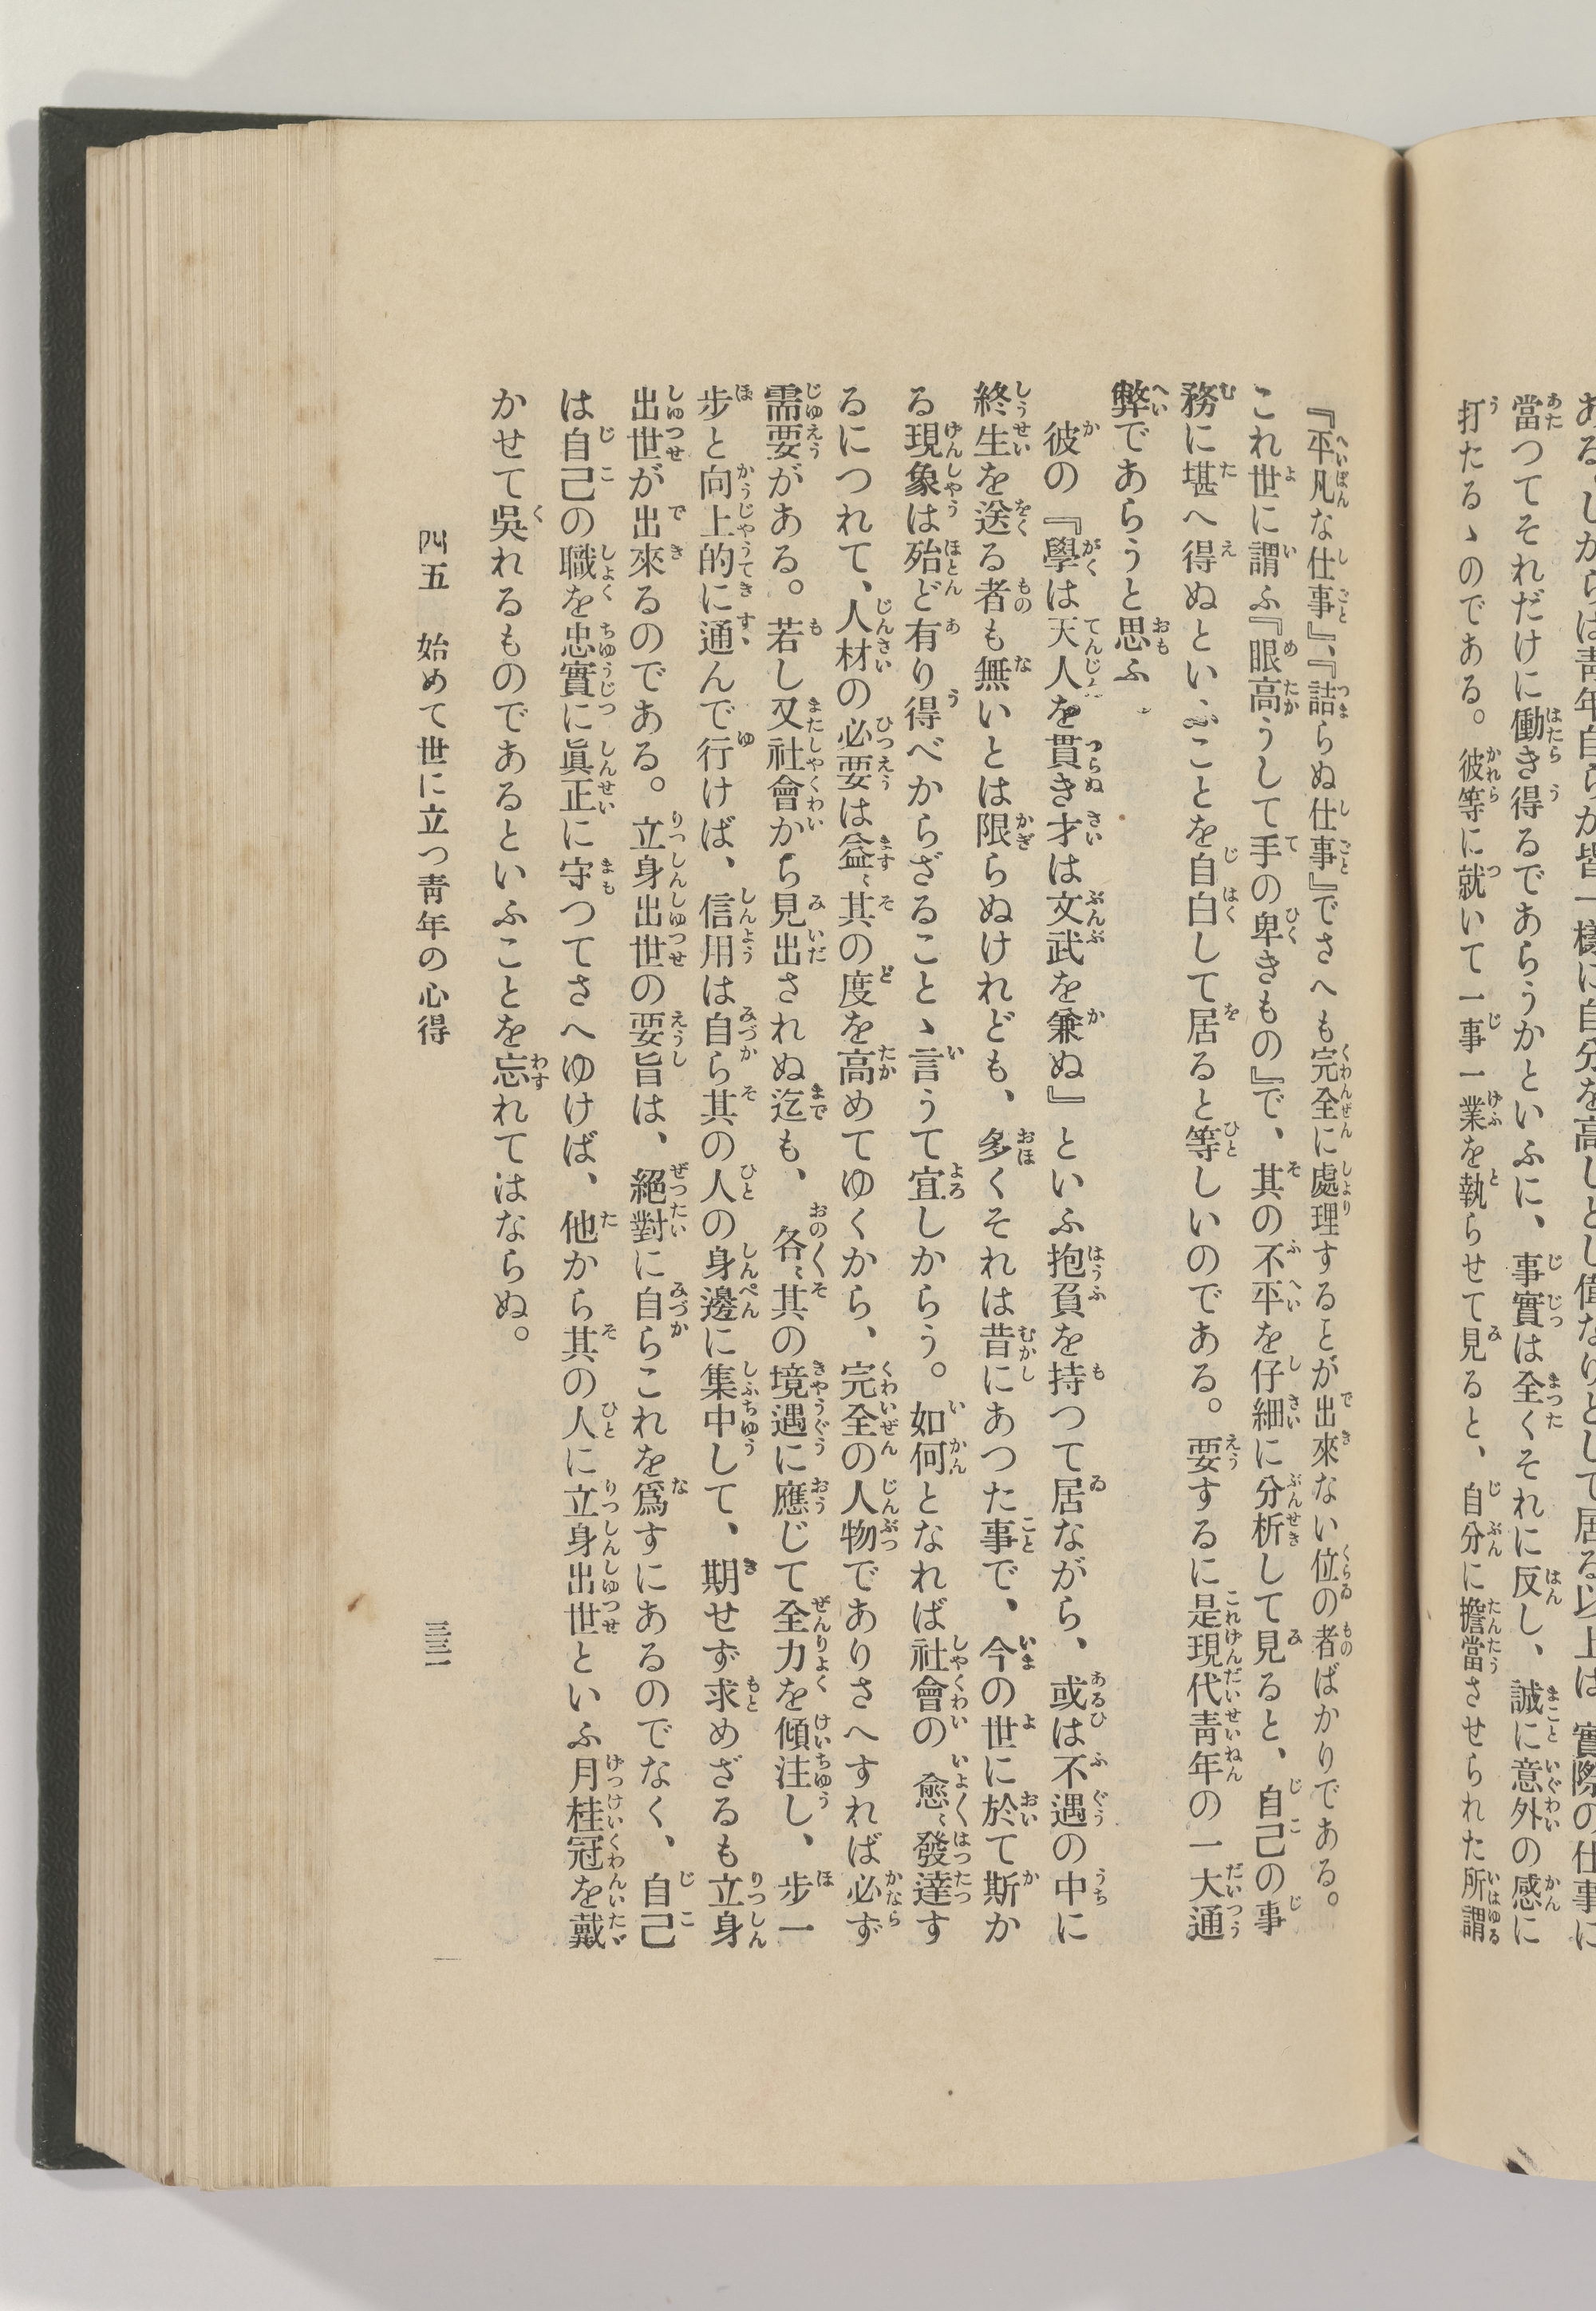 當つてそれだけに働き得るであらうかといふに、事實は全くそれに反し、誠に意外の感に
打たるゝのである。彼等に就いて一事一業を執らせて見ると、自分に擔當させられた所謂
『平凡な仕事』、『詰らぬ仕事』でさへも完全に處理することが出來ない位の者ばかりである。
これ世に謂ふ『眼高うして手の卑きもの』で、其の不平を仔細に分析して見ると、自己の事
務に堪へ得ぬといふことを自白して居ると等しいのである。要するに是現代青年の一大通
弊であらうと思ふ
彼の『學は天人を貫き才は文武を兼ぬ』といふ抱負を持つて居ながら、或は不遇の中に
終生を送る者も無いとは限らぬけれども、多くそれは昔にあつた事で、今の世に於て斯か
る現象は殆ど有り得べからざることゝ言うて宜しからう。如何となれば社會の愈〻發達す
るにつれて、人材の必要は益〻其の度を高めてゆくから、完全の人物でありさへすれば必ず
需要がある。若し又社會から見出されぬ迄も、各〻其の境遇に應じて全力を傾注し、歩一
歩と向上的に通んで行けば、信用は自ら其の人の身邊に集中して、期せず求めざるも立身
出世が出來るのである。立身出世の要旨は、絕對に自らこれを爲すにあるのでなく、自己
は自己の職を忠實に眞正に守つてさへゆけば、他から其の人に立身出世といふ月桂冠を戴
かせて吳れるものであるといふことを忘れてはならぬ。
四五　始めて世に立つ靑年の心得
三三一